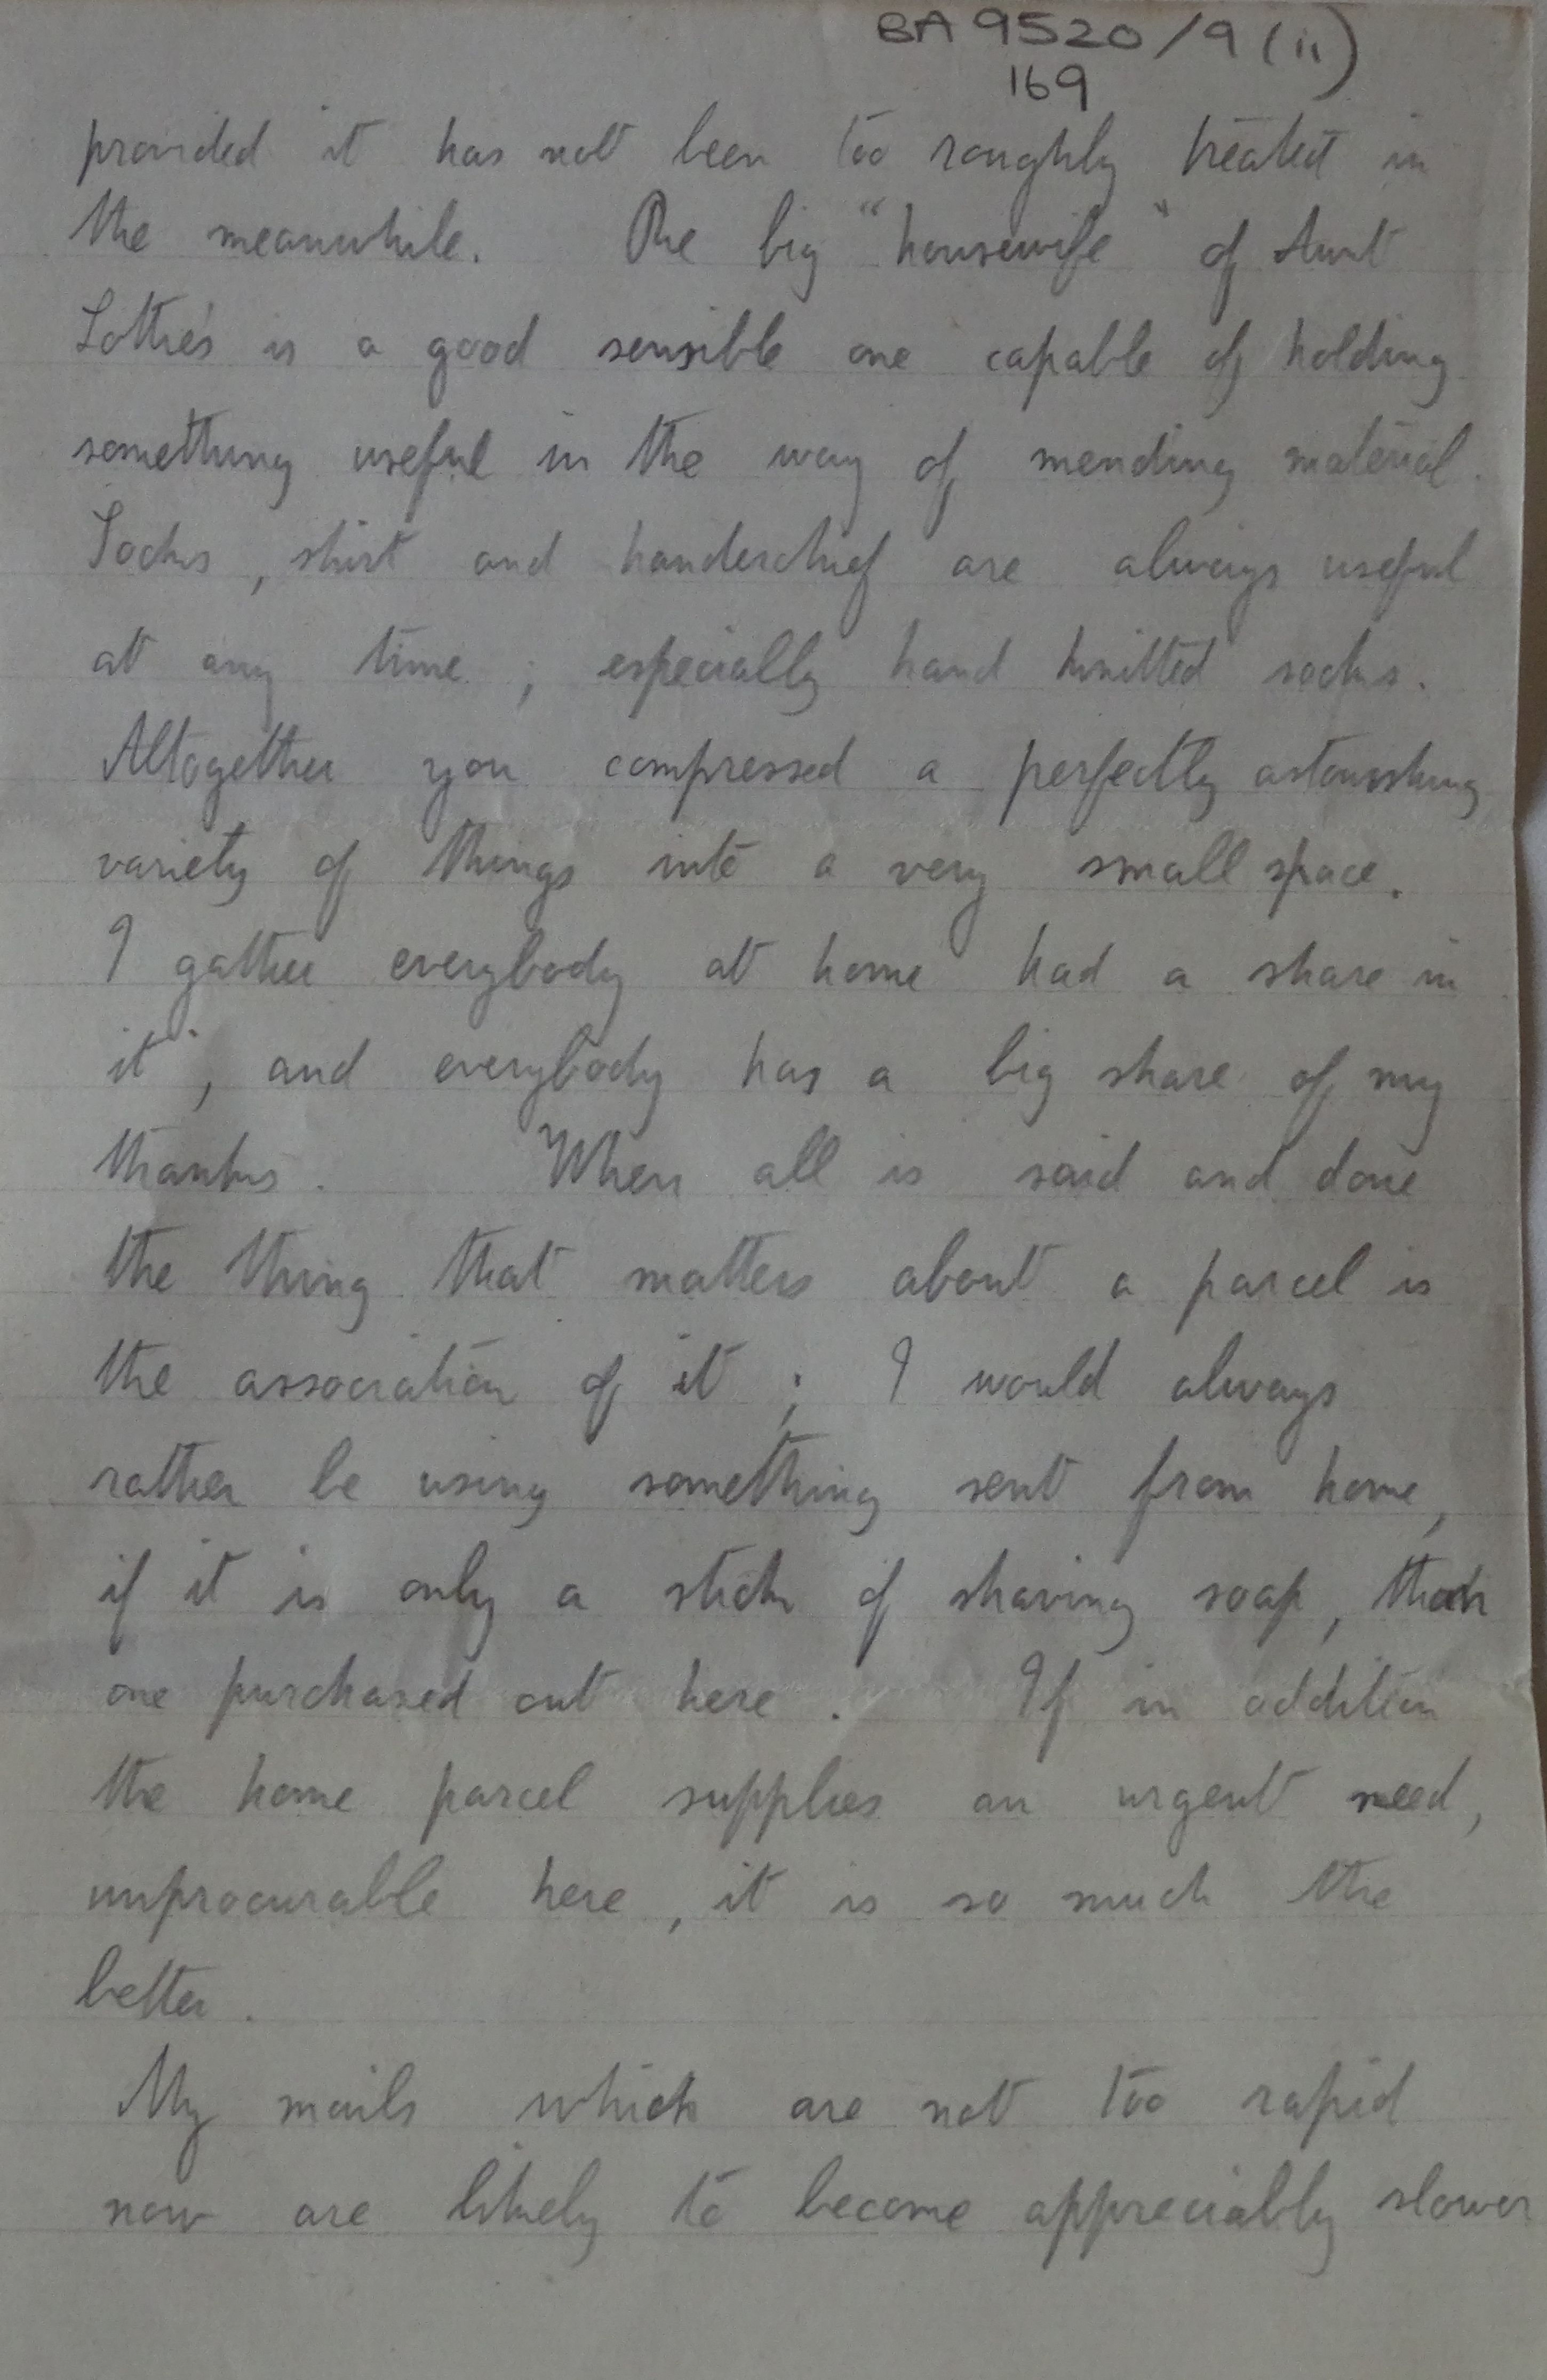 BA 9520/9 (ii)
169
provided it has not been too roughly treated in
the meanwhile. The big "housewife" of Aunt
Lottie's is a good sensible one capable of holding
something useful in the way of mending material.
Socks, shirt and handerchief are always useful
at any time; especially hand knitted socks.
Altogether you compressed a perfectly astonishing
variety of things into a very small space.
I gather everybody at home had a share in
it, and everybody has a big share of my
thanks. When all is said and done
the thing that matters about a parcel is
the association of it; I would always
rather be using something sent from home,
if it is only a stick of shaving soap, than
one purchased out here. If in addition
the home parcel supplies an urgent need,
unprocurable here, it is so much the
better.
My mails which are not too rapid
now are likely to become appreciably slower